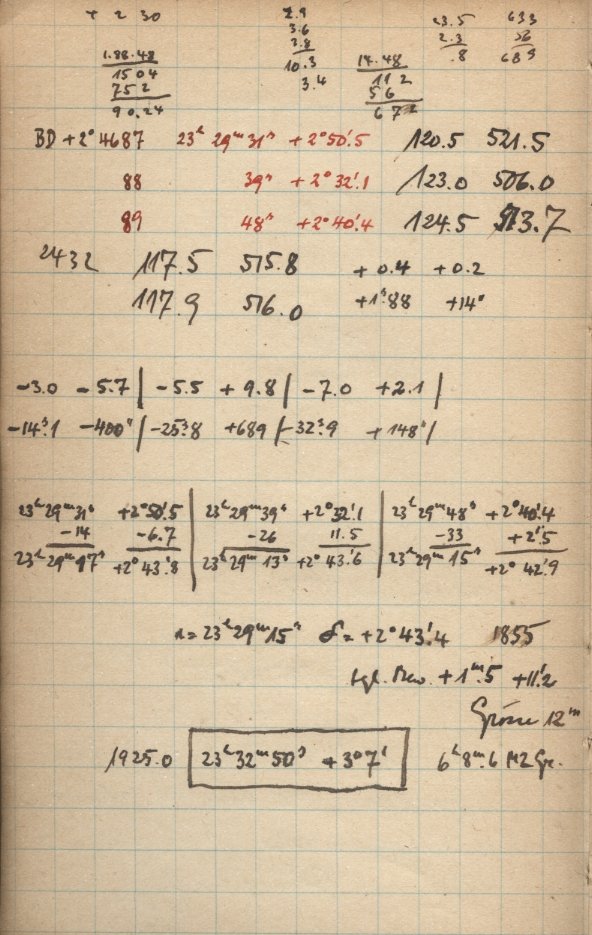 + 2 30
2.9
3.6
3.8
10.3
3.4
23.5
2.3
.8
633
56
689
1.88.48
1504
752
90.24
14.48
112
56
672
BD +2° 4687 23ʰ 29ᵐ 31ˢ +2° 50'.5 120.5 521.5
88 39ˢ +2° 32'.1 123.0 506.0
89 48ˢ +2° 40'.4 124.5 513.7
2432 117.5 515.8 +0.4 +0.2
117.9 516.0 +1ˢ.88 +14"
-3.0 -5.7 | -5.5 +9.8 | -7.0 +2.1 |
-14ˢ.1 -400" | -25ˢ.8 +689 | -32ˢ.9 +148" |
23ʰ29ᵐ31ˢ +2°50'.5 | 23ʰ29ᵐ39ˢ +2°32'.1 | 23ʰ29ᵐ48ˢ +2°40'.4
-14 -6.7 | -26 11.5 | -33 +2'.5
23ʰ29ᵐ17ˢ +2°43'.8 | 23ʰ29ᵐ13ˢ +2°43'.6 | 23ʰ29ᵐ15ˢ +2°42'.9
α = 23ʰ29ᵐ15ˢ δ = +2°43'.4 1855
tgl. Bew. +1ᵐ.5 +11'.2
Grösse 12ᵐ
1925.0 23ʰ32ᵐ50ˢ +3°7' 6ʰ8ᵐ.6 MZ Gr.